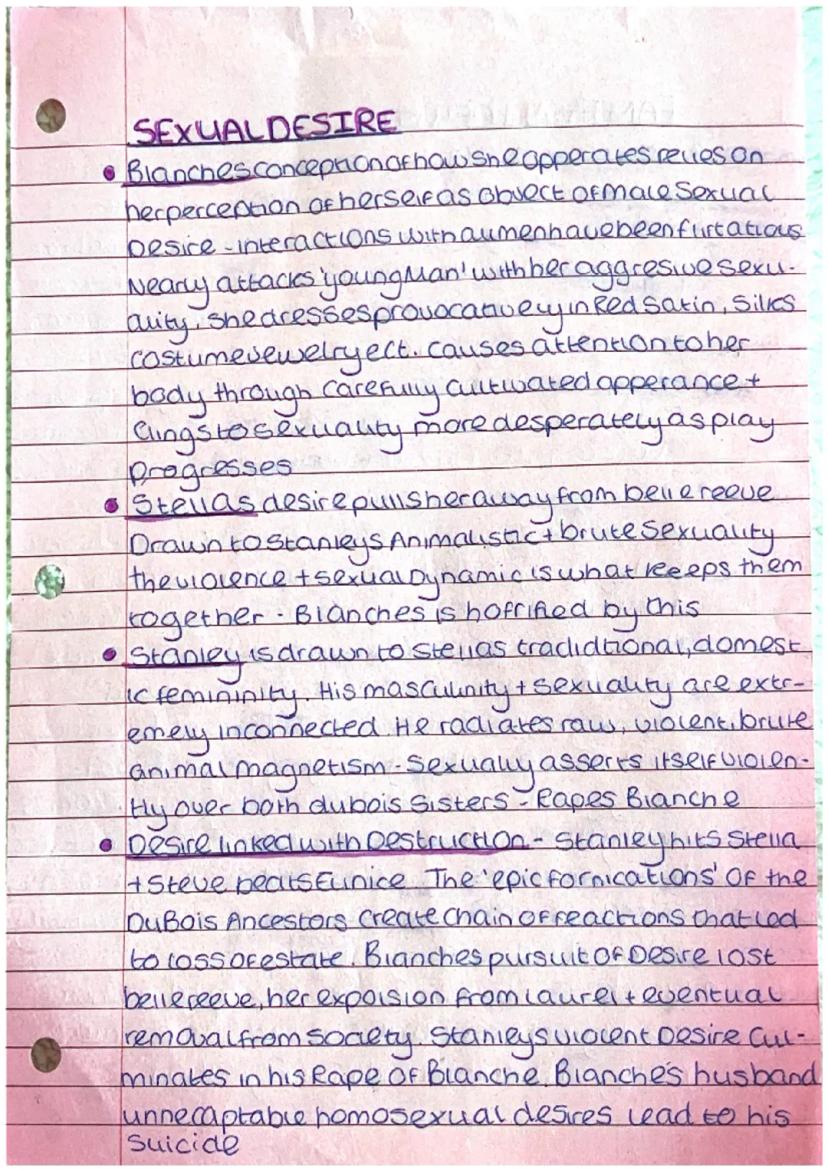 SEXUAL DESIRE
• Blanches conception of how she apperates relies on
her perception of herself as object of male sexual
Desire - interactions with all men have been flirtatious
Nearly attacks 'young Man' with her aggresive sexu-
ality, she dresses provocatively in Red Satin, Silks
costume jewelry ect. causes attention to her
body through carefully cultivated apperance +
clings to sexuality more desperately as play
progresses
• Stellas desire pulls her away from belle reeve
Drawn to Stanleys Animalistic + brute sexuality
the violence + sexual Dynamic is what keeps them
together - Blanches is horrified by this
• Stanley is drawn to stellas tradidtional, domest
ic femininity. His masculinity + sexuality are extr-
emely inconnected. He radiates raw, violent, brute
animal magnetism - Sexually asserts itself violen-
tly over both dubois Sisters - Rapes Blanche
• Desire linked with Destruction - Stanley hits Stella
+ Steve beats Eunice. The 'epic fornications' of the
DuBois Ancestors create chain of reactions that led
to loss of estate. Blanches pursuit of Desire lost
belle reeve, her expolsion from laurel + eventual
removal from society. Stanleys violent Desire Cul-
minates in his Rape of Blanche. Blanche's husband
unnecaptable homosexual desires lead to his
suicide